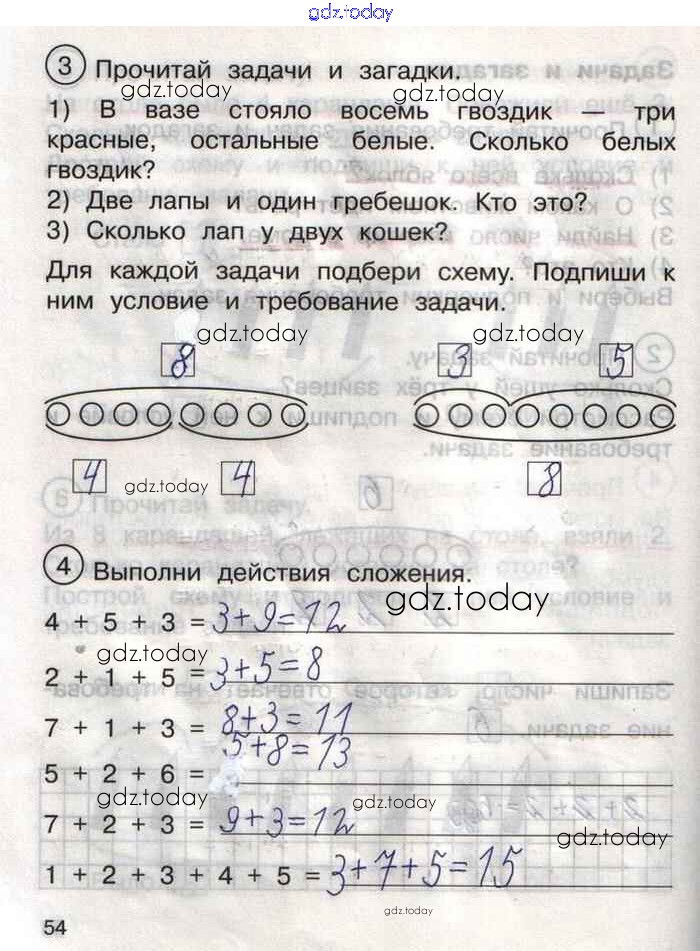 gdz.today
3 Прочитай задачи и загадки.
gdz.today gdz.today
1) В вазе стояло восемь гвоздик — три
красные, остальные белые. Сколько белых
гвоздик?
2) Две лапы и один гребешок. Кто это?
3) Сколько лап у двух кошек?
Для каждой задачи подбери схему. Подпиши к
ним условие и требование задачи.
gdz.today gdz.today
8 3 5
4 gdz.today 4 8
4 Выполни действия сложения.
gdz.today
4 + 5 + 3 = 3+9=12
gdz.today
2 + 1 + 5 = 3+5=8
7 + 1 + 3 = 8+3=11
gdz.today
5 + 2 + 6 = 5+8=13
gdz.today gdz.today
7 + 2 + 3 = 9+3=12
gdz.today
1 + 2 + 3 + 4 + 5 = 3+7+5=15
gdz.today
54